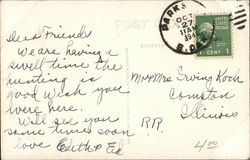 Dear Friends
We are having a
swell time the
hunting is
good wish you
were here.
Will see you
some time soon
love Edith & Ed
POST
OCT
27
11 AM
1 CENT 1
Mr & Mrs Irving Koch
Compton
Illinois
R.R.
4.00